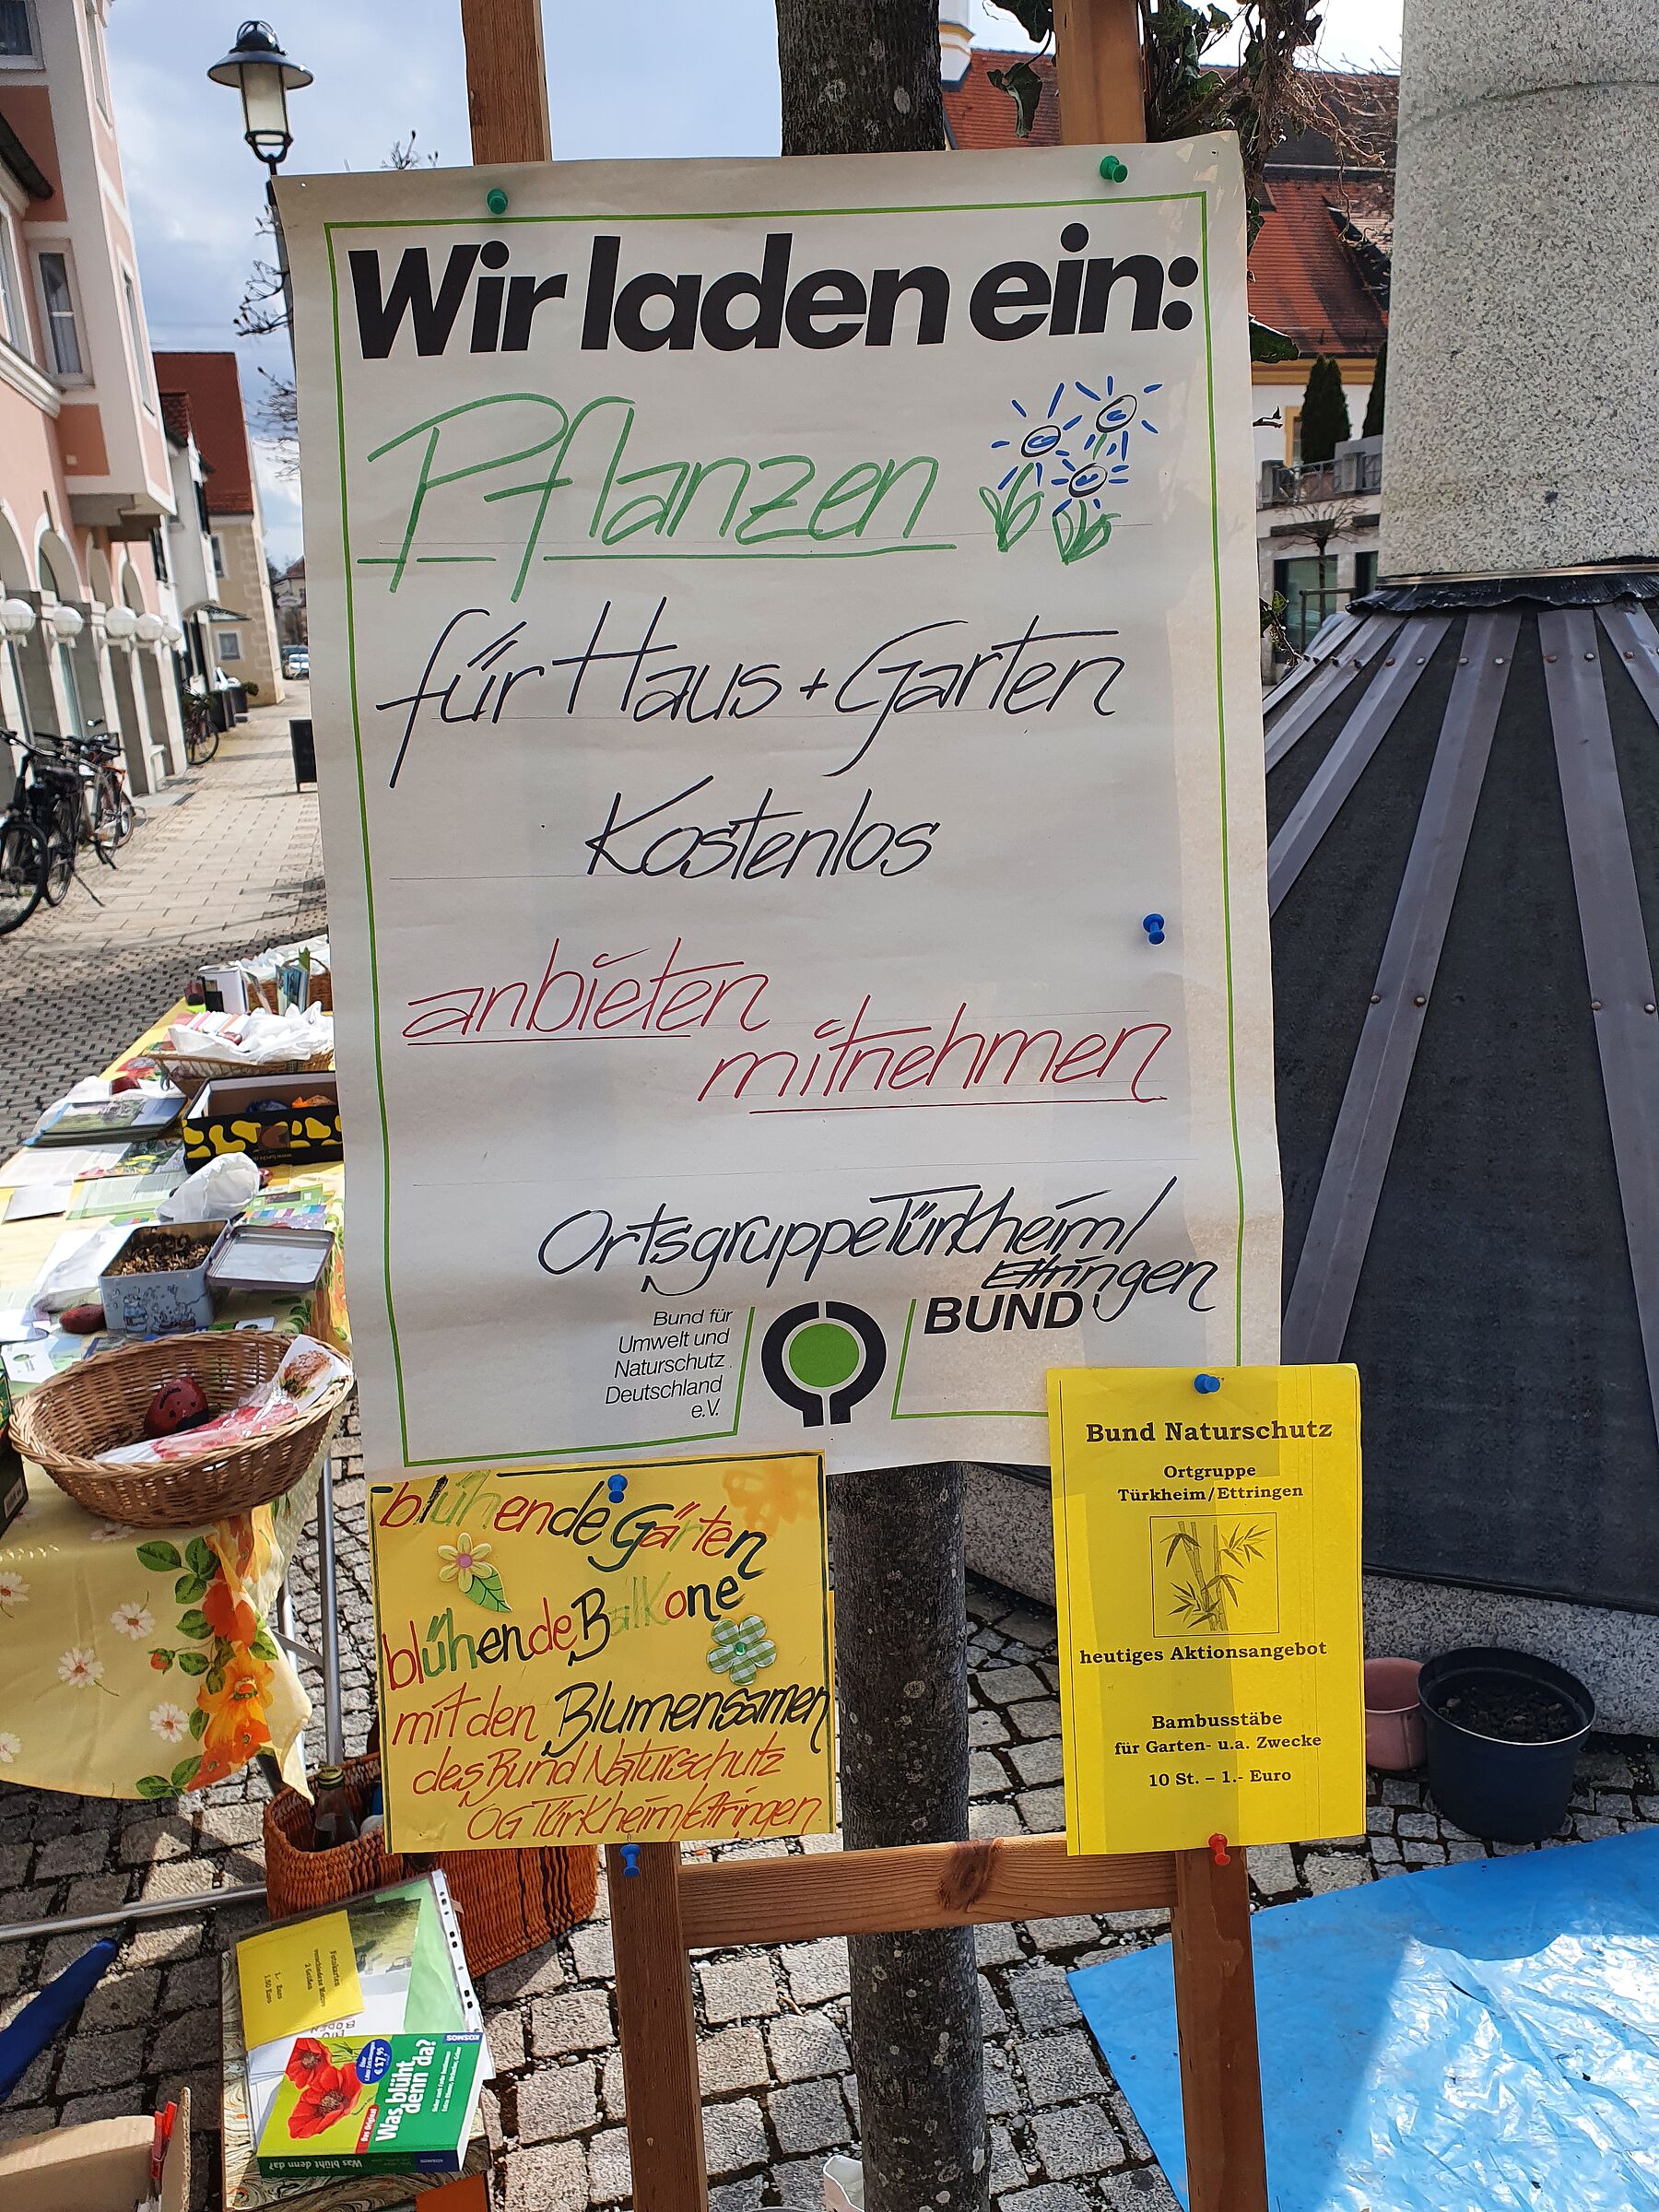 Wir laden ein:
Pflanzen
für Haus + Garten
Kostenlos
anbieten
mitnehmen
Ortsgruppe Türkheim/
Ettringen
Bund für
Umwelt und
Naturschutz
Deutschland
e.V.
BUND
blühende Gärten
blühende Balkone
mit den Blumensamen
des Bund Naturschutz
OG Türkheim/Ettringen
Bund Naturschutz
Ortgruppe
Türkheim/Ettringen
heutiges Aktionsangebot
Bambusstäbe
für Garten- u.a. Zwecke
10 St. – 1.- Euro
KOSMOS
Was blüht
denn da?
Das Original
€ 17,95
Was blüht denn da?
KOSMOS